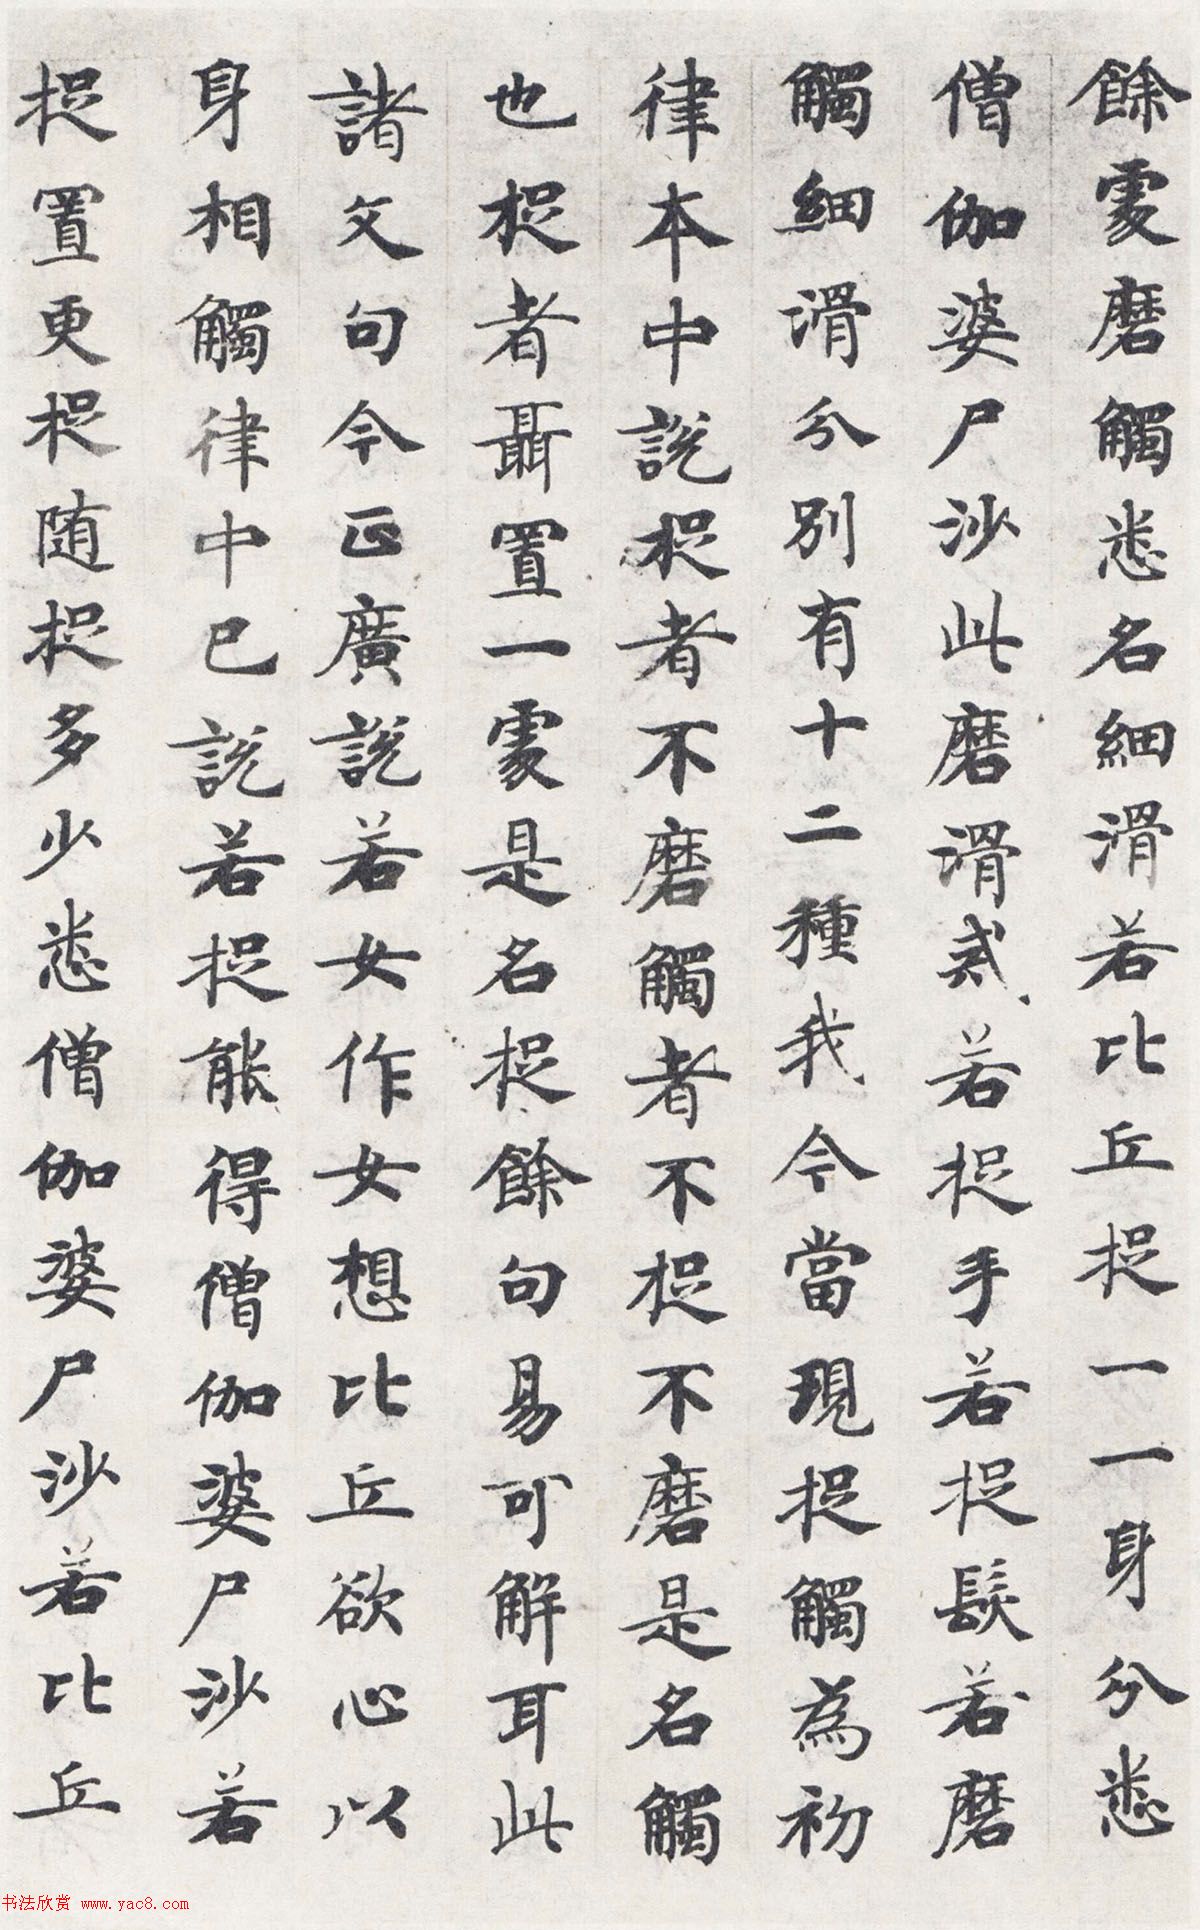 餘處磨觸悉名細滑若比丘捉一一身分悉
僧伽婆尸沙此磨滑戒若捉手若捉髮若磨
觸細滑分別有十二種我今當現捉觸為初
律本中說捉者不磨觸者不捉不磨是名觸
也捉者聶置一處是名捉餘句易可解耳此
諸文句今正廣說若女作女想比丘欲心以
身相觸律中已說若捉能得僧伽婆尸沙若
捉置更捉随捉多少悉僧伽婆尸沙若比丘
书法欣赏 www.yac8.com